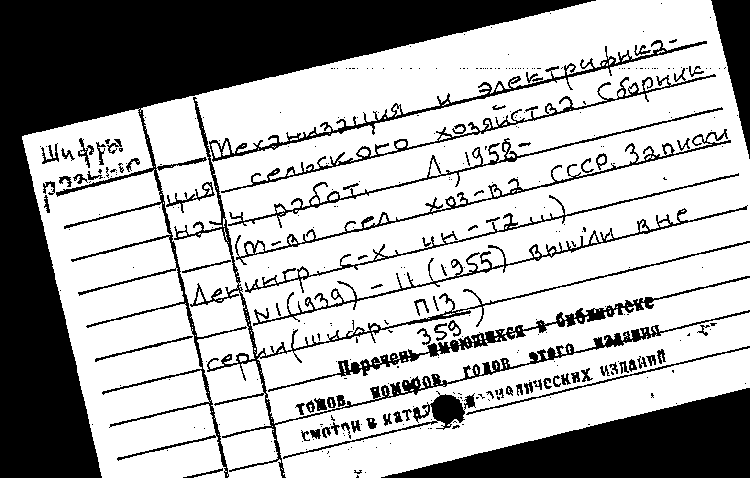 Шифры
разные
Механизация и электрифика-
ция сельского хозяйства. Сборник
науч. работ. Л., 1958-
(М-во сел. хоз-ва СССР. Записки
Ленингр. с.-х. ин-та ...)
N1(1939) - 11 (1955) вышли вне
серии (шифр: П13/359)
Перечень имеющихся в библиотеке
томов, номеров, годов этого издания
смотри в катал периодических изданий